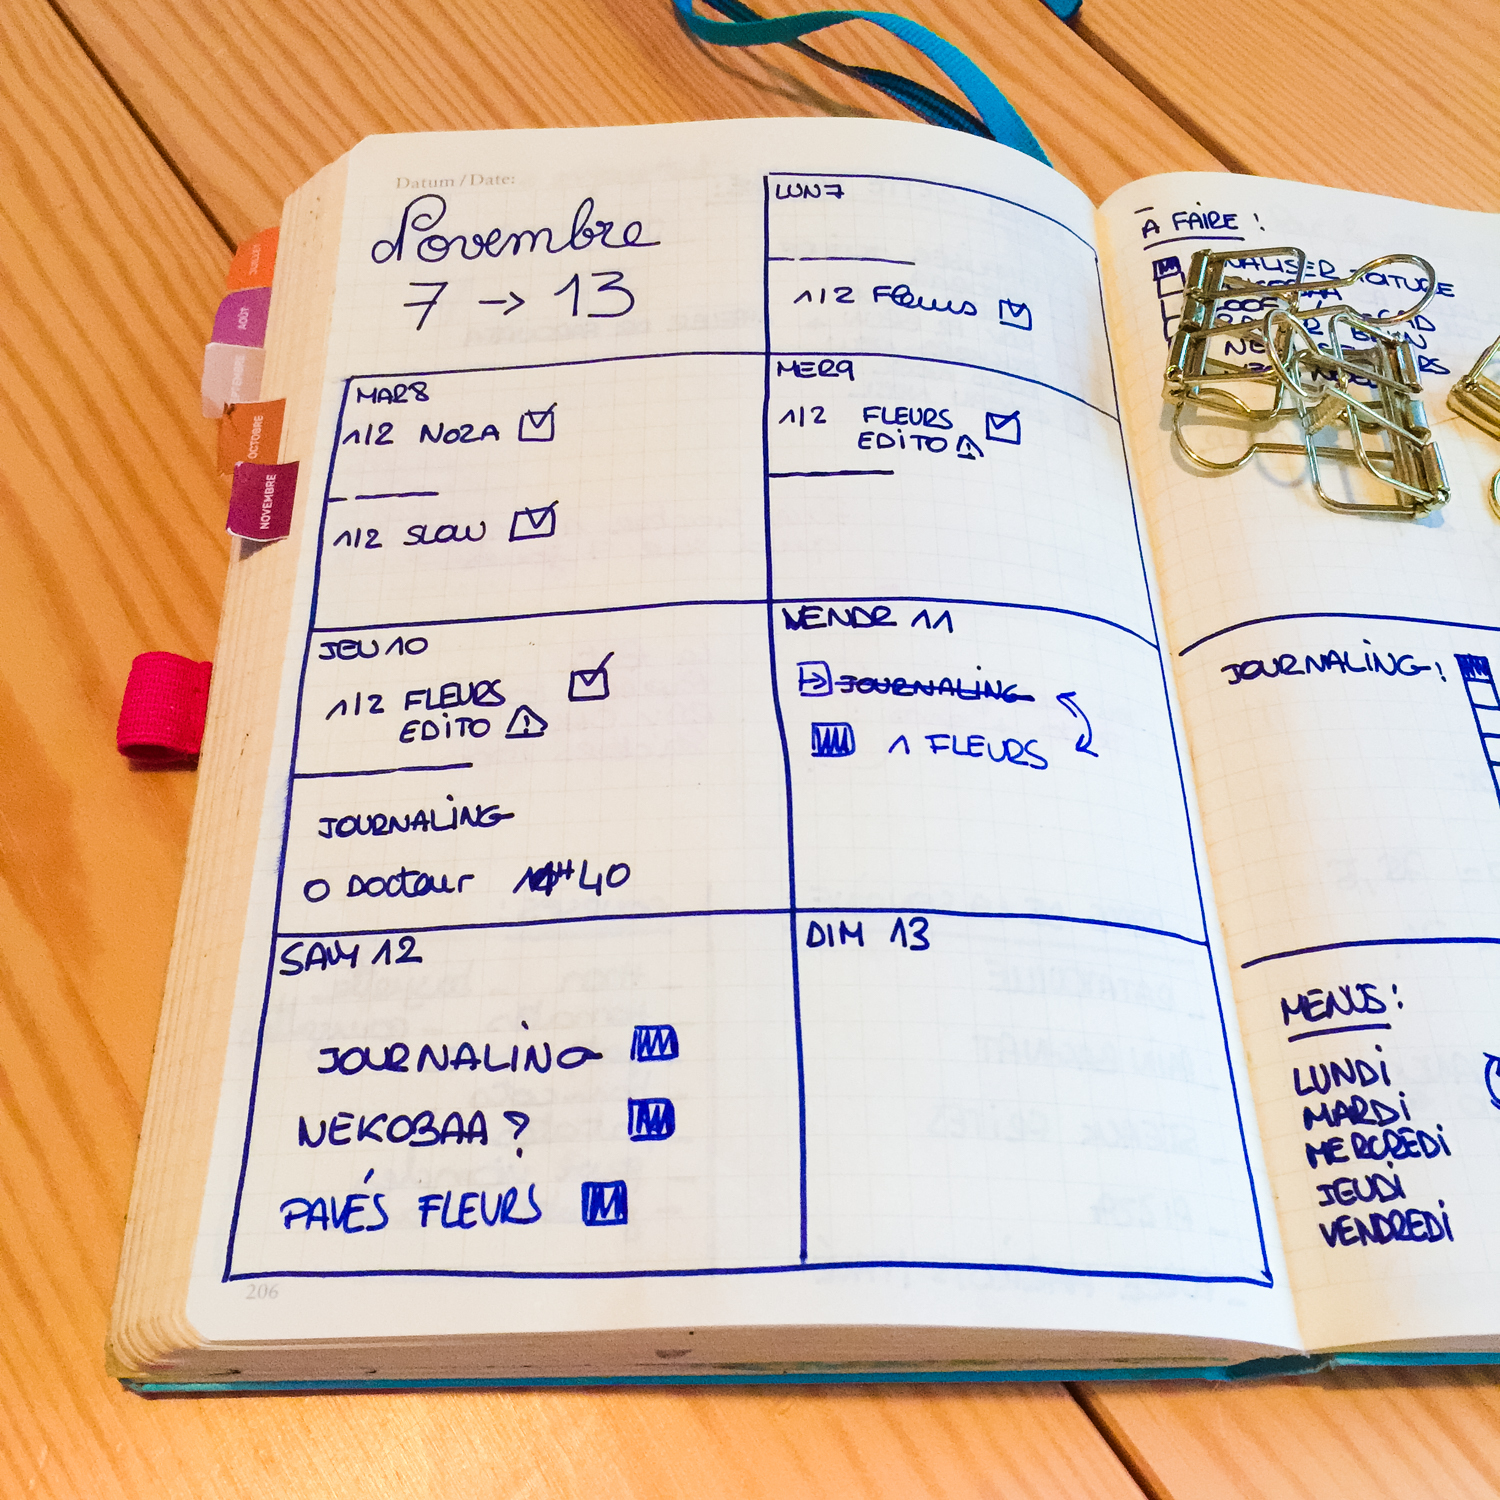 Datum / Date:
Novembre
7 → 13
LUN 7
1/2 Fleurs
MAR 8
1/2 NOZA
1/2 SLOW
MER 9
1/2 FLEURS
EDITO
JEU 10
1/2 FLEURS
EDITO
JOURNALING
O Docteur 40
VENDR 11
JOURNALING
1 FLEURS
SAM 12
JOURNALING
NEKOBAA ?
PAVÉS FLEURS
DIM 13
206
JUILLET
AOÛT
SEPTEMBRE
OCTOBRE
NOVEMBRE
À FAIRE :
JOURNALING :
MENUS :
LUNDI
MARDI
MERCREDI
JEUDI
VENDREDI